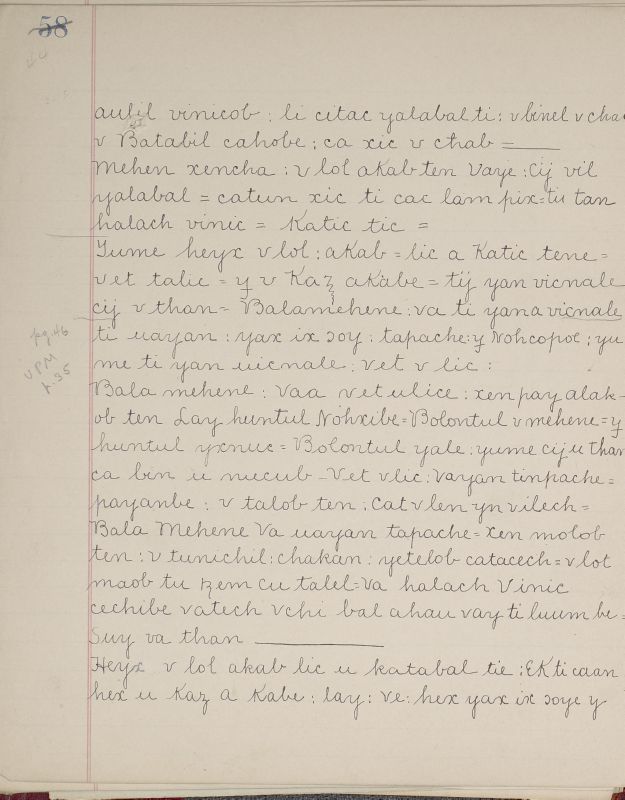 58
aulil vinicob : li citac yalabal ti : v binel v cha
v Batabil cahobe ; ca xic v chab =
Mehen xencha : v lol akab ten Vaye : Cij vil
yalabal = catun xic ti cac lam pix = tu tan
halach vinic = Katic tic =
Yume heyx v lol : akab = lic a Katic tene =
vet talic = y v Kaz akabe = tij yan vicnale
cij v than = Balamehene : va ti yana vicnale
ti uayan : yax ix ɔoy : tapache : y Nohcopoe ; yu
me ti yan uicnale : vet v lic :
Bala mehene : Vaa vet ulice : xen pay alak-
ob ten Lay huntul Nohxibe = Bolontul v mehene = y
huntul yxnuc = Bolontul yale : yume cij u than
ca bin u nucub - Vet vlic : vayan tinpache =
payanbe : v talob ten : Cat v len yn vilech =
Bala Mehene Va uayan tapache = Xen molob
ten : v tunichil : chakan : yetelob catacech = v lot
maob tu zem cu talel = Va halach Vinic
cechibe vatech v chi bal ahau vay ti luum be =
Suy va than
Heyx v lol akab lic u katabal tie : EK ti caan
hex u Kaz a Kabe : lay : ve : hex yax ix ɔoye y
pg. 46
v PM
p. 35